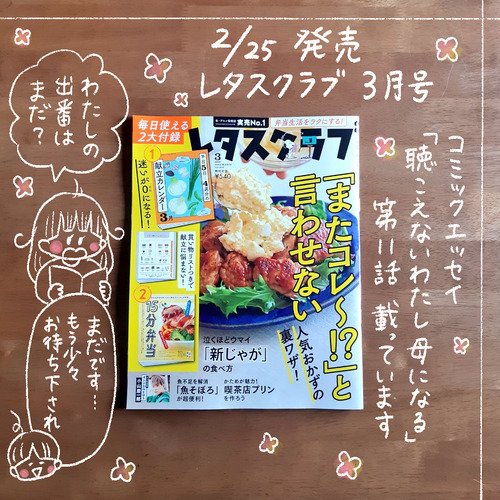 2/25 発売
レタスクラブ 3月号
わたしの
出番は
まだ?
コミックエッセイ
「聴こえないわたし 母になる」
第11話 載っています
まだです…
もう少々
お待ち下され
毎日使える
2大付録
実売No.1
弁当生活をラクにする!
レタスクラブ
3
1
献立カレンダー
迷いが0になる!
買い物リストつきで
献立に悩まない!
2
15分弁当
「またコレ〜!?」と
言わせない
人気おかずの
裏ワザ!
泣くほどウマイ
「新じゃが」
の食べ方
魚不足を解消
「魚そぼろ」
が超便利!
かためが魅力!
喫茶店プリン
を作ろう